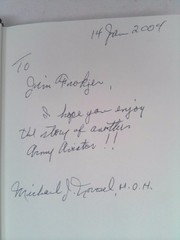 14 Jan 2004
To
Jim
I hope you enjoy
the story of another
Army Aviator !!
Michael J. Novosel, M.O.H.